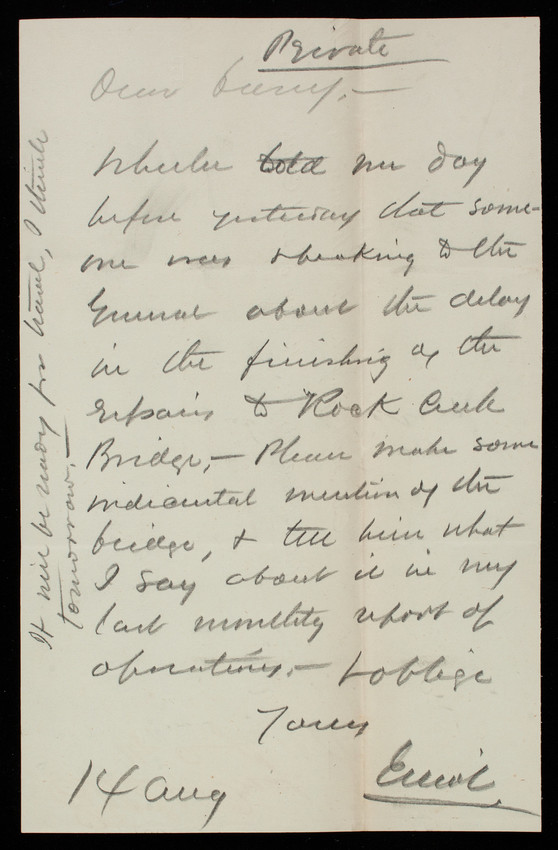 Private
Dear Casey,—
Wheeler told me day
before yesterday that some-
one was speaking to the
General about the delay
in the finishing of the
repairs to Rock Creek
Bridge,— Please make some
incidental mention of the
bridge, & tell him what
I say about it in my
last monthly report of
operations,— & oblige
Yours
14 Aug
It will be ready for travel, I think
tomorrow.—